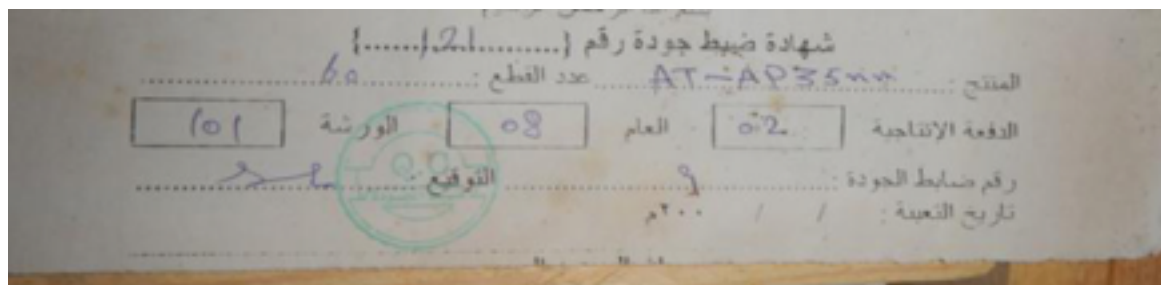 شهادة ضبط جودة رقم {.........121.......}
المنتج : AT-AP35mm عدد القطع : 60
الدفعة الانتاجية 02 العام 08 الورشة 101
رقم ضابط الجودة : 9 التوقيع :
تاريخ التعبئة : / / ٢٠٠م